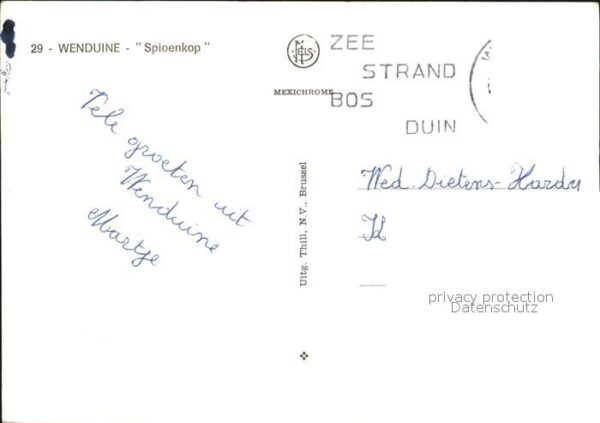 29 - WENDUINE - "Spioenkop"
NELS
MEXICHROME
ZEE
STRAND
BOS
DUIN
Vele groeten uit
Wenduine
Martje
Uitg. Thill, N.V., Brussel
Wed. Dietens-Hardy
privacy protection
Datenschutz